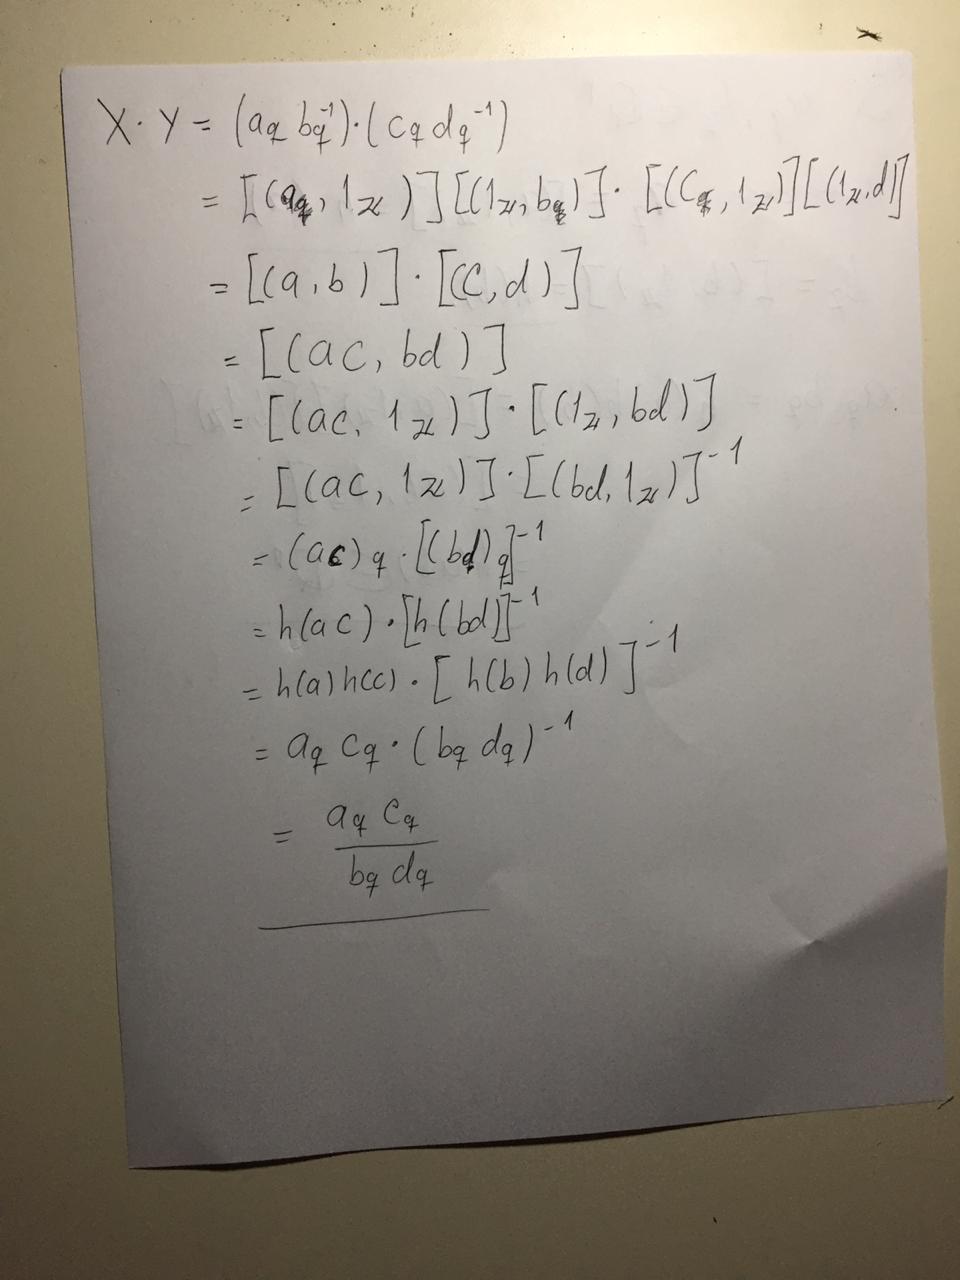 X · Y = (a_q b_q^-1) · (c_q d_q^-1)
= [(a_q, 1_Z)] [(1_Z, b_q)] · [(C_q, 1_Z)] [(1_Z, d)]
= [(a, b)] · [(C, d)]
= [(ac, bd)]
= [(ac, 1_Z)] · [(1_Z, bd)]
= [(ac, 1_Z)] · [(bd, 1_Z)]^-1
= (ac)_q · [(bd)_q]^-1
= h(ac) · [h(bd)]^-1
= h(a) h(c) · [h(b) h(d)]^-1
= a_q c_q · (b_q d_q)^-1
= a_q c_q
b_q d_q